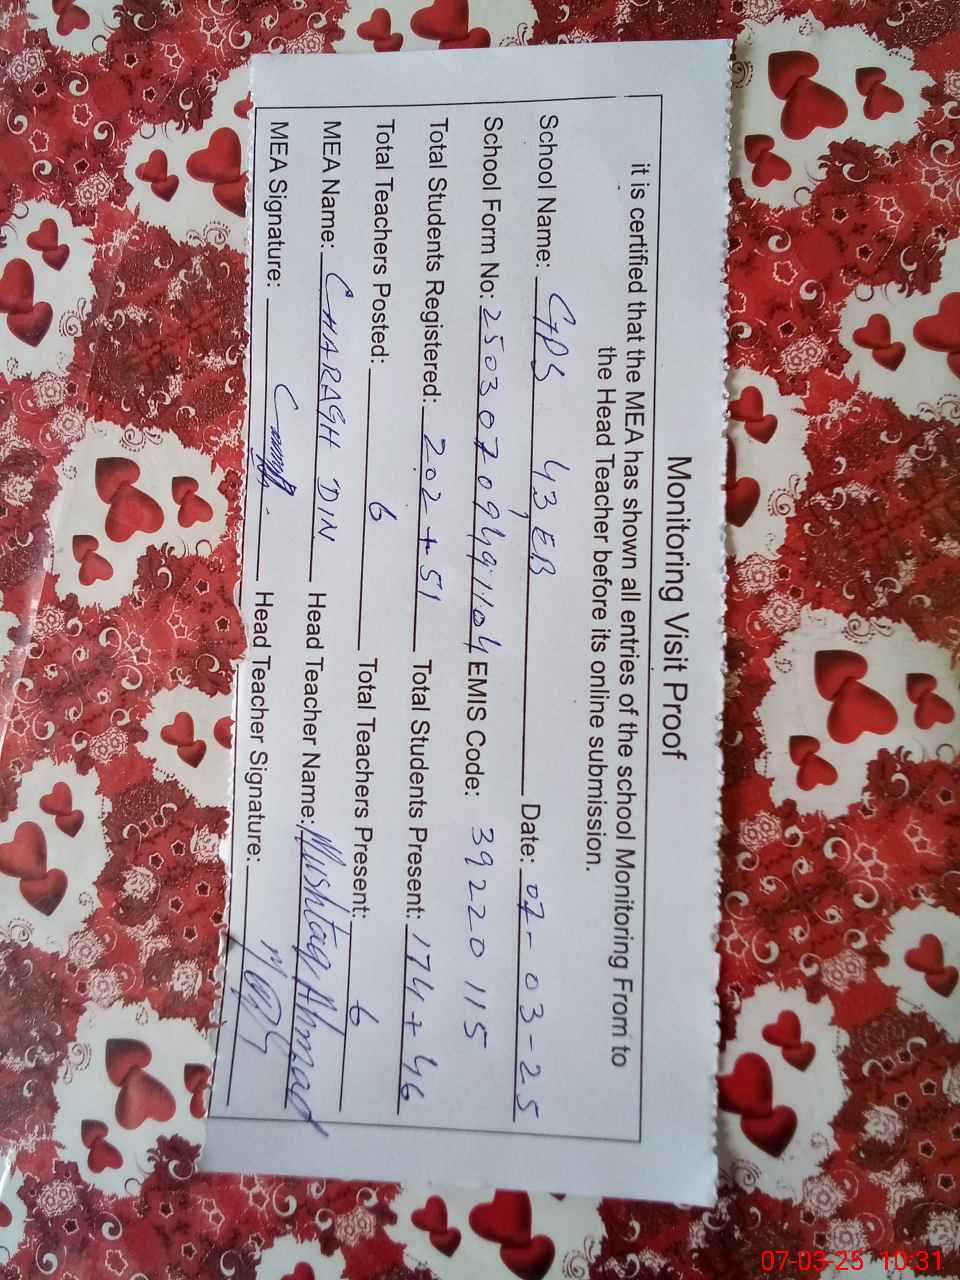 Monitoring Visit Proof
it is certified that the MEA has shown all entries of the school Monitoring From to
the Head Teacher before its online submission.
School Name: GPS 43, EB Date: 07-03-25
School Form No: 250307094991104 EMIS Code: 39220115
Total Students Registered: 202+51 Total Students Present: 174+46
Total Teachers Posted: 6 Total Teachers Present: 6
MEA Name: CHARAGH DIN Head Teacher Name: Mushtaq Ahmad
MEA Signature: Head Teacher Signature:
07-03-25 10:31